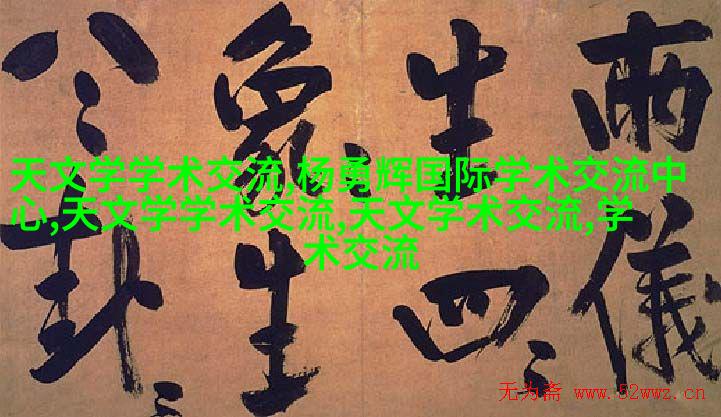 兩儀
生四
象生
八卦
天文学学术交流,杨勇辉国际学术交流中
心,天文学学术交流,天文学术交流,学
术交流
无为斋 www.52wwz.cn